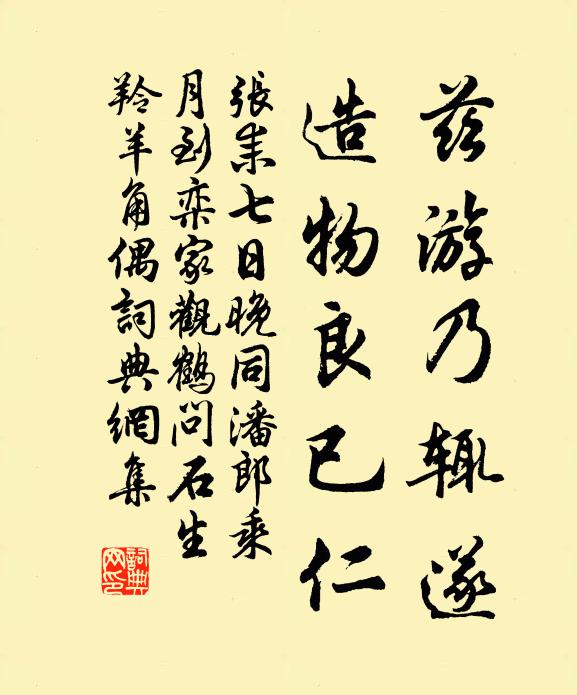 兹游乃辄遂
造物良已仁
張耒七日晚同潘郎乘
月到栾家觀鶴問石生
羚羊角偶詞典網集
詞典网印